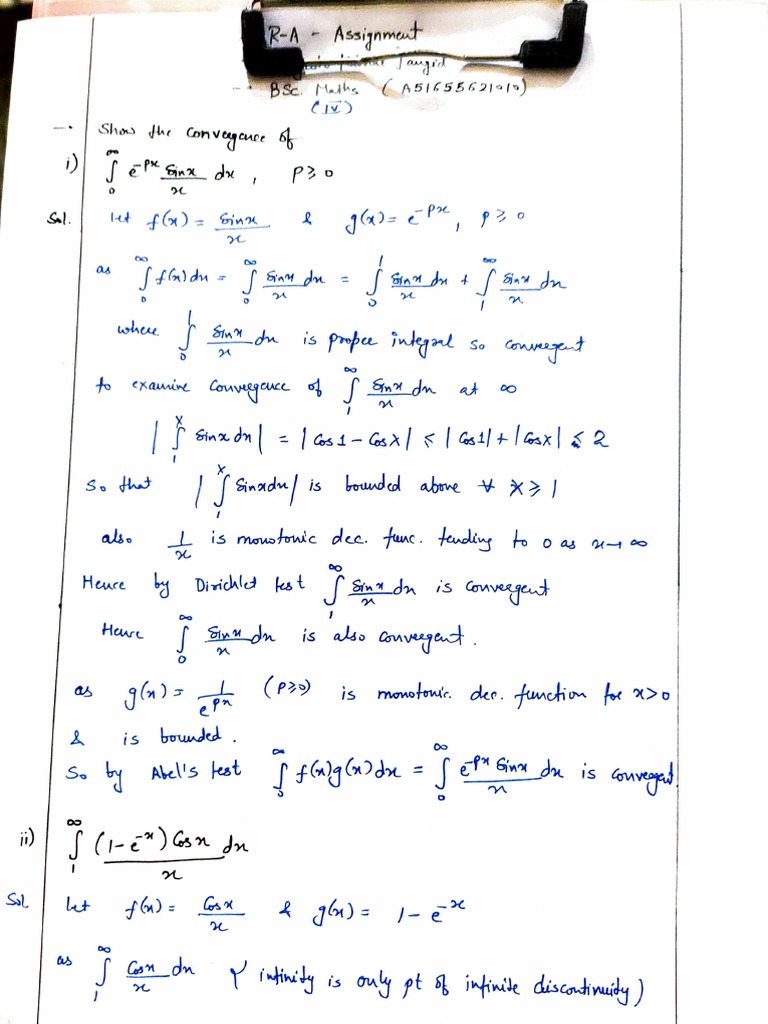 R-A - Assignment
Jangid
BSc. Maths (A51655621010)
(IV)
Show the convergence of
i) ∫₀^∞ e^-px sinx/x dx, p ≥ 0
Sol. let f(x) = sinx/x & g(x) = e^-px, p ≥ 0
as ∫₀^∞ f(x)dx = ∫₀^∞ sinx/x dx = ∫₀^1 sinx/x dx + ∫₁^∞ sinx/x dx
where ∫₀^1 sinx/x dx is proper integral so convergent
to examine convergence of ∫₁^∞ sinx/x dx at ∞
|∫₁^X sinx dx| = |Cos1 - CosX| ≤ |Cos1| + |CosX| ≤ 2
So that |∫₁^X sinxdx| is bounded above ∀ X ≥ 1
also 1/x is monotonic dec. func. tending to 0 as x→∞
Hence by Dirichlet test ∫₁^∞ sinx/x dx is convergent
Hence ∫₀^∞ sinx/x dx is also convergent.
as g(x) = 1/e^px (p≥0) is monotonic. dec. function for x>0
& is bounded.
So by Abel's test ∫₀^∞ f(x)g(x)dx = ∫₀^∞ e^-px sinx/x dx is convergent
ii) ∫₁^∞ (1-e^-x) Cosx/x dx
Sol let f(x) = Cosx/x & g(x) = 1-e^-x
as ∫₁^∞ Cosx/x dx (∵ infinity is only pt of infinite discontinuity)